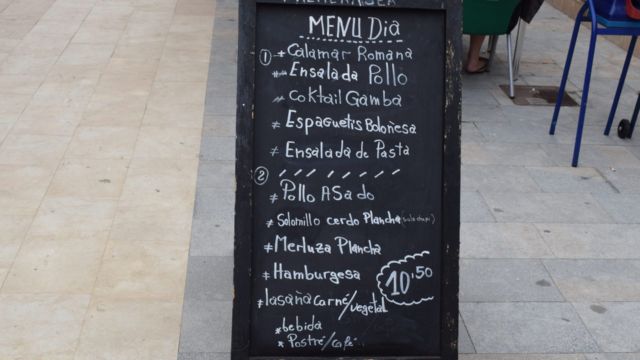 MENU Dia
① * Calamar Romana
* Ensalada Pollo
* Coktail Gamba
* Espaguetis Boloñesa
* Ensalada de Pasta
②
* Pollo ASado
* Solomillo cerdo Plancha
* Merluza Plancha
* Hamburgesa
10'50
* lasaña carne/vegetal
* bebida
* Postre/café